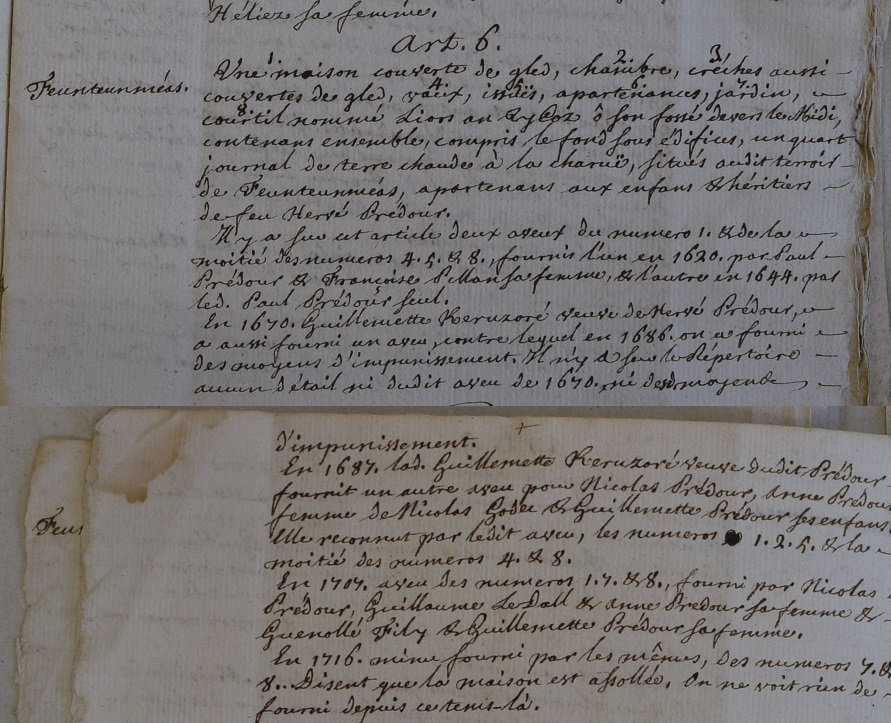 Héliez sa femme.
Art. 6.
Feunteunméas.
1 2 3
Une maison couverte de gled, chambre, crêches aussi
4 5 6 7
couvertes de gled, vaux, issuës, apartenances, jardin, &
8
courtil nommé Liors an Ty Coz ô son fossé devers le Midi,
contenans ensemble, compris le fond sous édifices, un quart
journal de terre chaude à la charuë, situés audit terroir
de Feunteunméas, apartenans aux enfans & héritiers
de feu Hervé Prédour.
Il y a sur cet article deux aveux du numero 1. & de la
moitié des numeros 4. 5. & 8., fournis l'un en 1620. par Paul
Prédour & Françoise Pellan sa femme, & l'autre en 1644. par
led. Paul Prédour seul.
En 1670. Guillemette Keruzoré veuve de Hervé Prédour,
a aussi fourni un aveu, contre lequel en 1686. on a fourni
des moyens d'impunissement. Il n'y a sur le Répertoire
aucun détail ni dudit aveu de 1670. ni desd. moyens
d'impunissement.
En 1687. lad. Guillemette Keruzoré veuve dudit Prédour
fournit un autre aveu pour Nicolas Prédour, Anne Prédour
femme de Nicolas Godec & Guillemette Prédour ses enfans.
Elle reconnut par ledit aveu, les numeros 1. 2. 5. & la
moitié des numeros 4. & 8.
Feun
En 1707. aveu des numeros 1. 7. & 8., fourni par Nicolas
Prédour, Guillaume Le Dall & Anne Predour sa femme &
Guenollé Fily & Guillemette Prédour sa femme.
En 1716. minu fourni par les mêmes, des numeros 7. &
8. Disent que la maison est assollée. On ne voit rien de
fourni depuis ce tems-là.